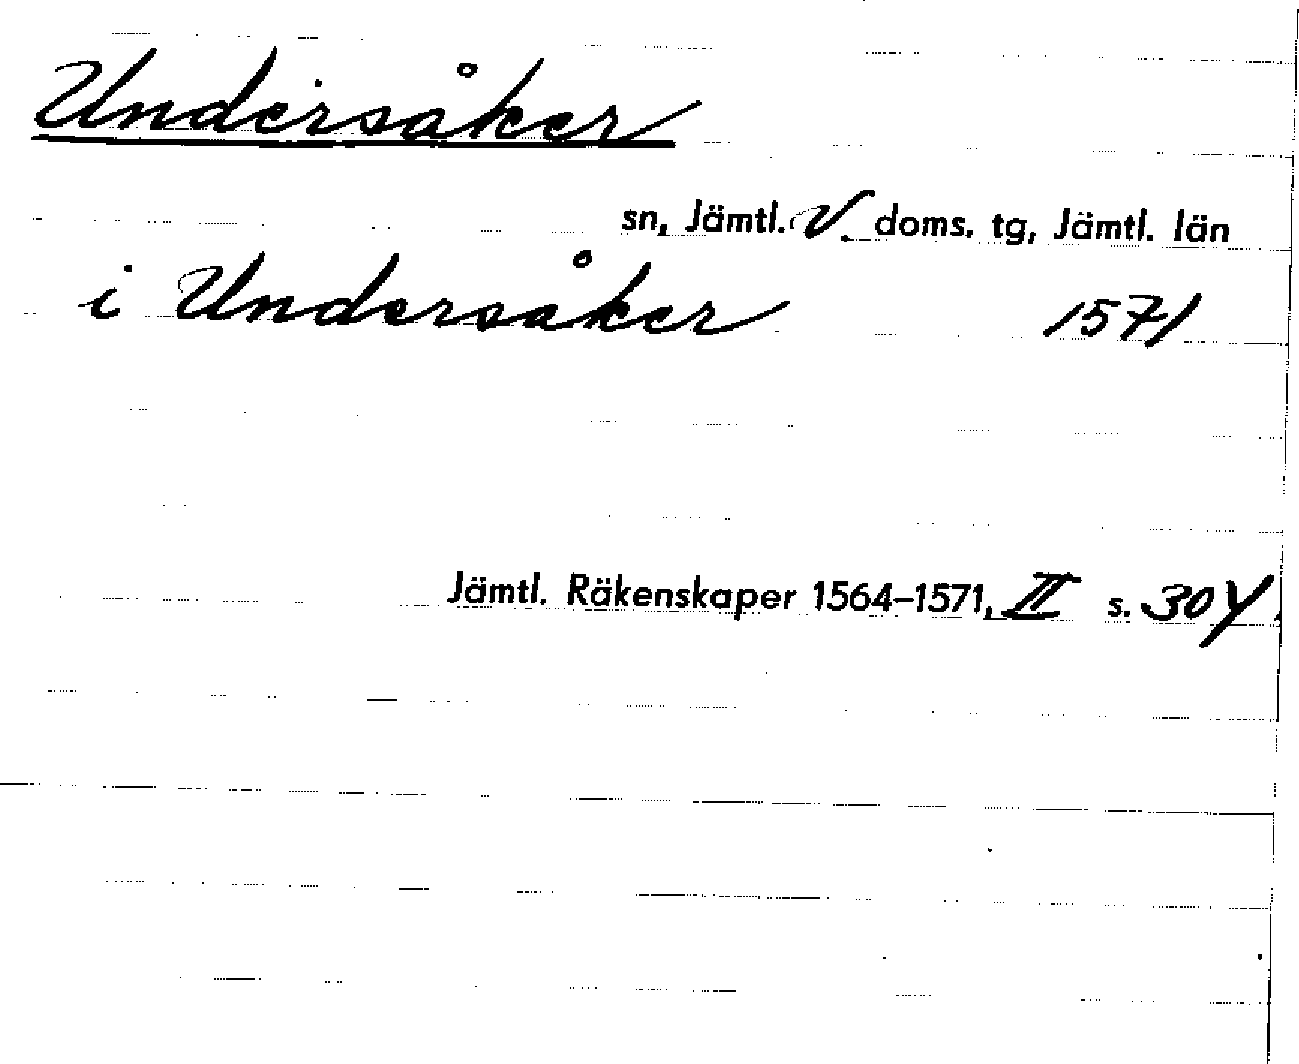 Undersåker
sn, Jämtl. V. doms. tg, Jämtl. län
i Undersåker 1571
Jämtl. Räkenskaper 1564–1571, II s. 304.